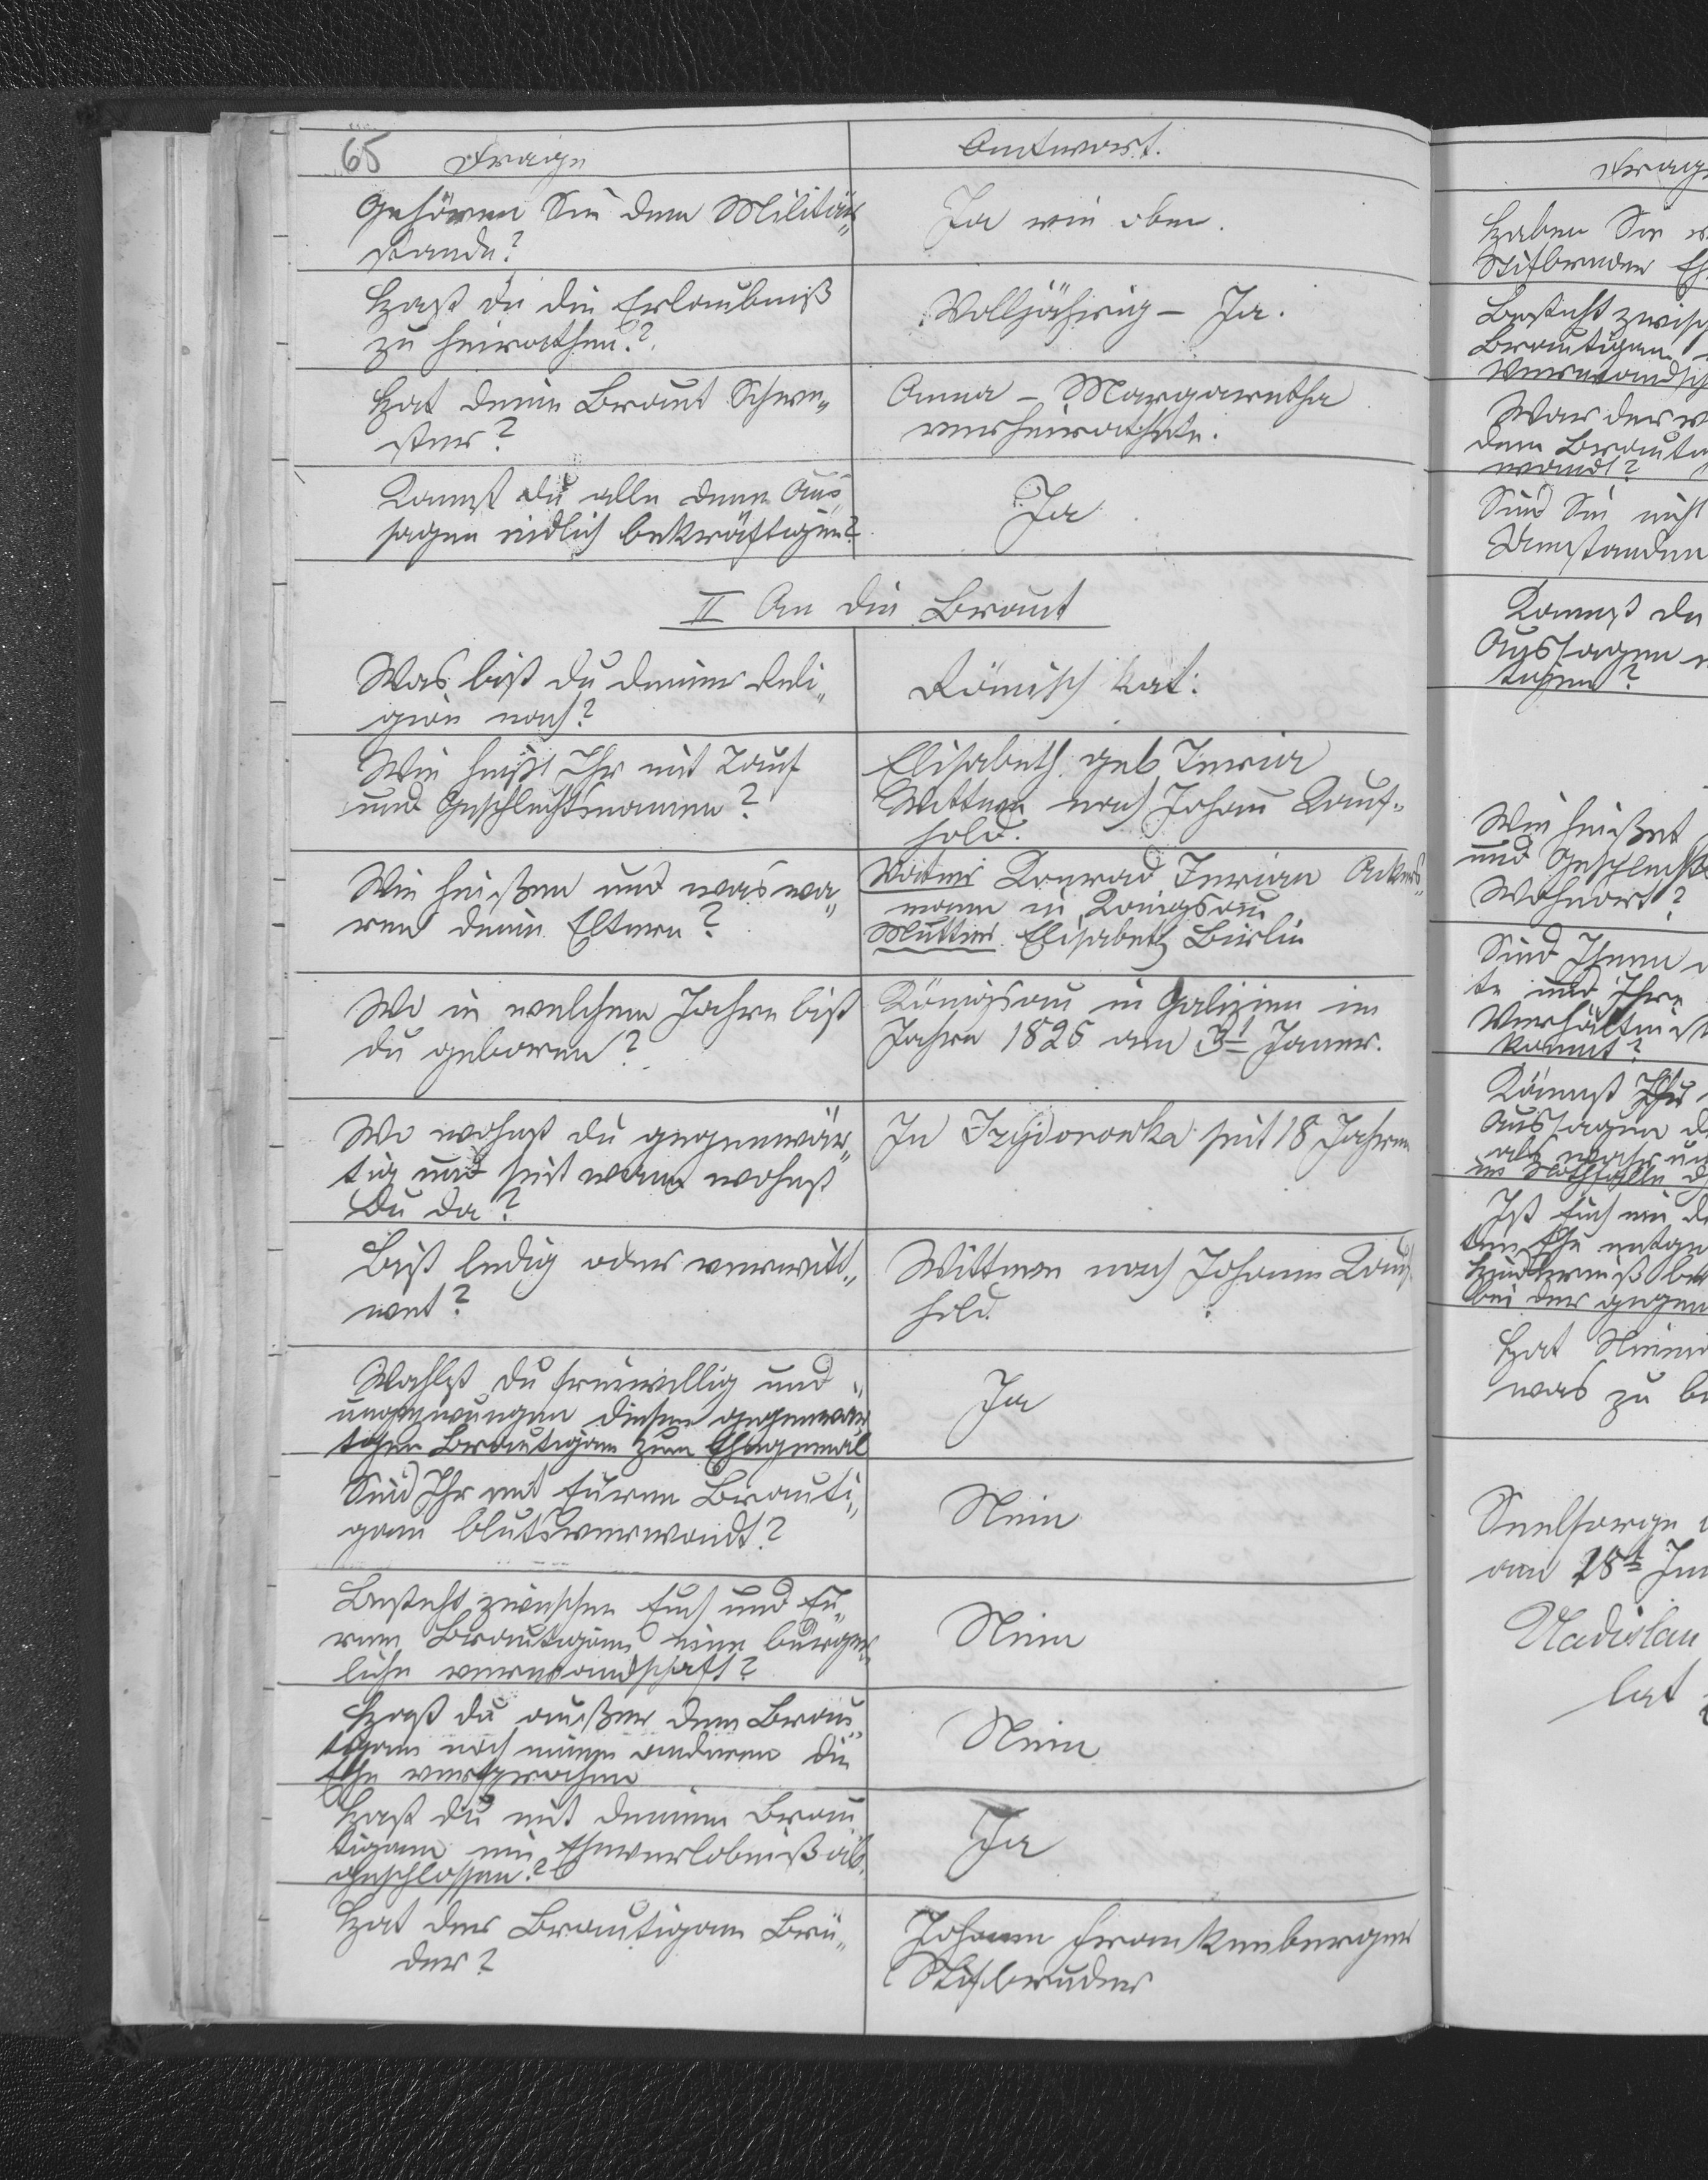 65 Frage
Antwort.
Gehören Sie dem Militär„
stande?
Ja wie oben.
Hast du die Erlaubniß
zu heirathen?
Volljährig – Ja.
Hat deine Braut Schwe„
ster?
Anna – Margaretha
verheirathete.
Kannst du alle deine Aus„
sagen eidlich bekräftigen?
Ja
II An die Braut
Was bist du deiner Reli„
gion nach?
Römisch kat:
Wie heißt Ihr mit Tauf
und Geschlechtsnamen?
Elisabeth geb Juria
Wittwe nach Johann Kauf„
hold.
Wie heißen und was wa„
ren deine Eltern?
Vater Konrad Jurian Ackers„
mann in Königsau
Mutter Elisabeth Bürlin
Wo in welchem Jahre bist
du geboren?
Königsau in Galizien im
Jahre 1825 am 3t Janner.
Wo wohnst du gegenwär„
tig und seit wann wohnst
Du da?
In Izydorowka seit 18 Jahren
Bist ledig oder verwitt„
wet?
Wittwe nach Johann Kauf
hold.
Wahlst du freiwillig und
ungezwungen diesen gegenwär„
tigen Brautigam zum Ehegemal
Ja
Seid Ihr mit Eurem Brauti„
gam blutsverwandt?
Nein
Besteht zwischen Euch und Eu„
rem Brautigam eine bürger„
liche verwandschaft?
Nein
Hast du außer dem Brau„
tigam noch einem anderen die
Ehe versprochen
Nein
Hast du mit deinem Brau
tigam ein Eheverlobniß ab„
geschlossen?
Ja
Hat der Brautigam Brü„
der?
Johann Frankenberger
Stifbruder
Frage
Haben Sie
Stifbruder
Besteht zwisch
Brautigam
Verwandsch
War der
dem Brautig
wandt?
Sind Sie nicht
Umstanden
Kannst du
Aussagen
tigen?
Wie heißet
und Geschlechts
Wohnort?
Sind Ihnen
te und Ihre
Verhältniß
kannt?
Könnet Ihr
Aussagen
als wahr und
im Nothfalle
Ist Euch ein
der Ehe entge
Hinderniß bek
bei der gegen
Hat Niema
was zu
Seelsorge
am 18t
Vladislau
lat